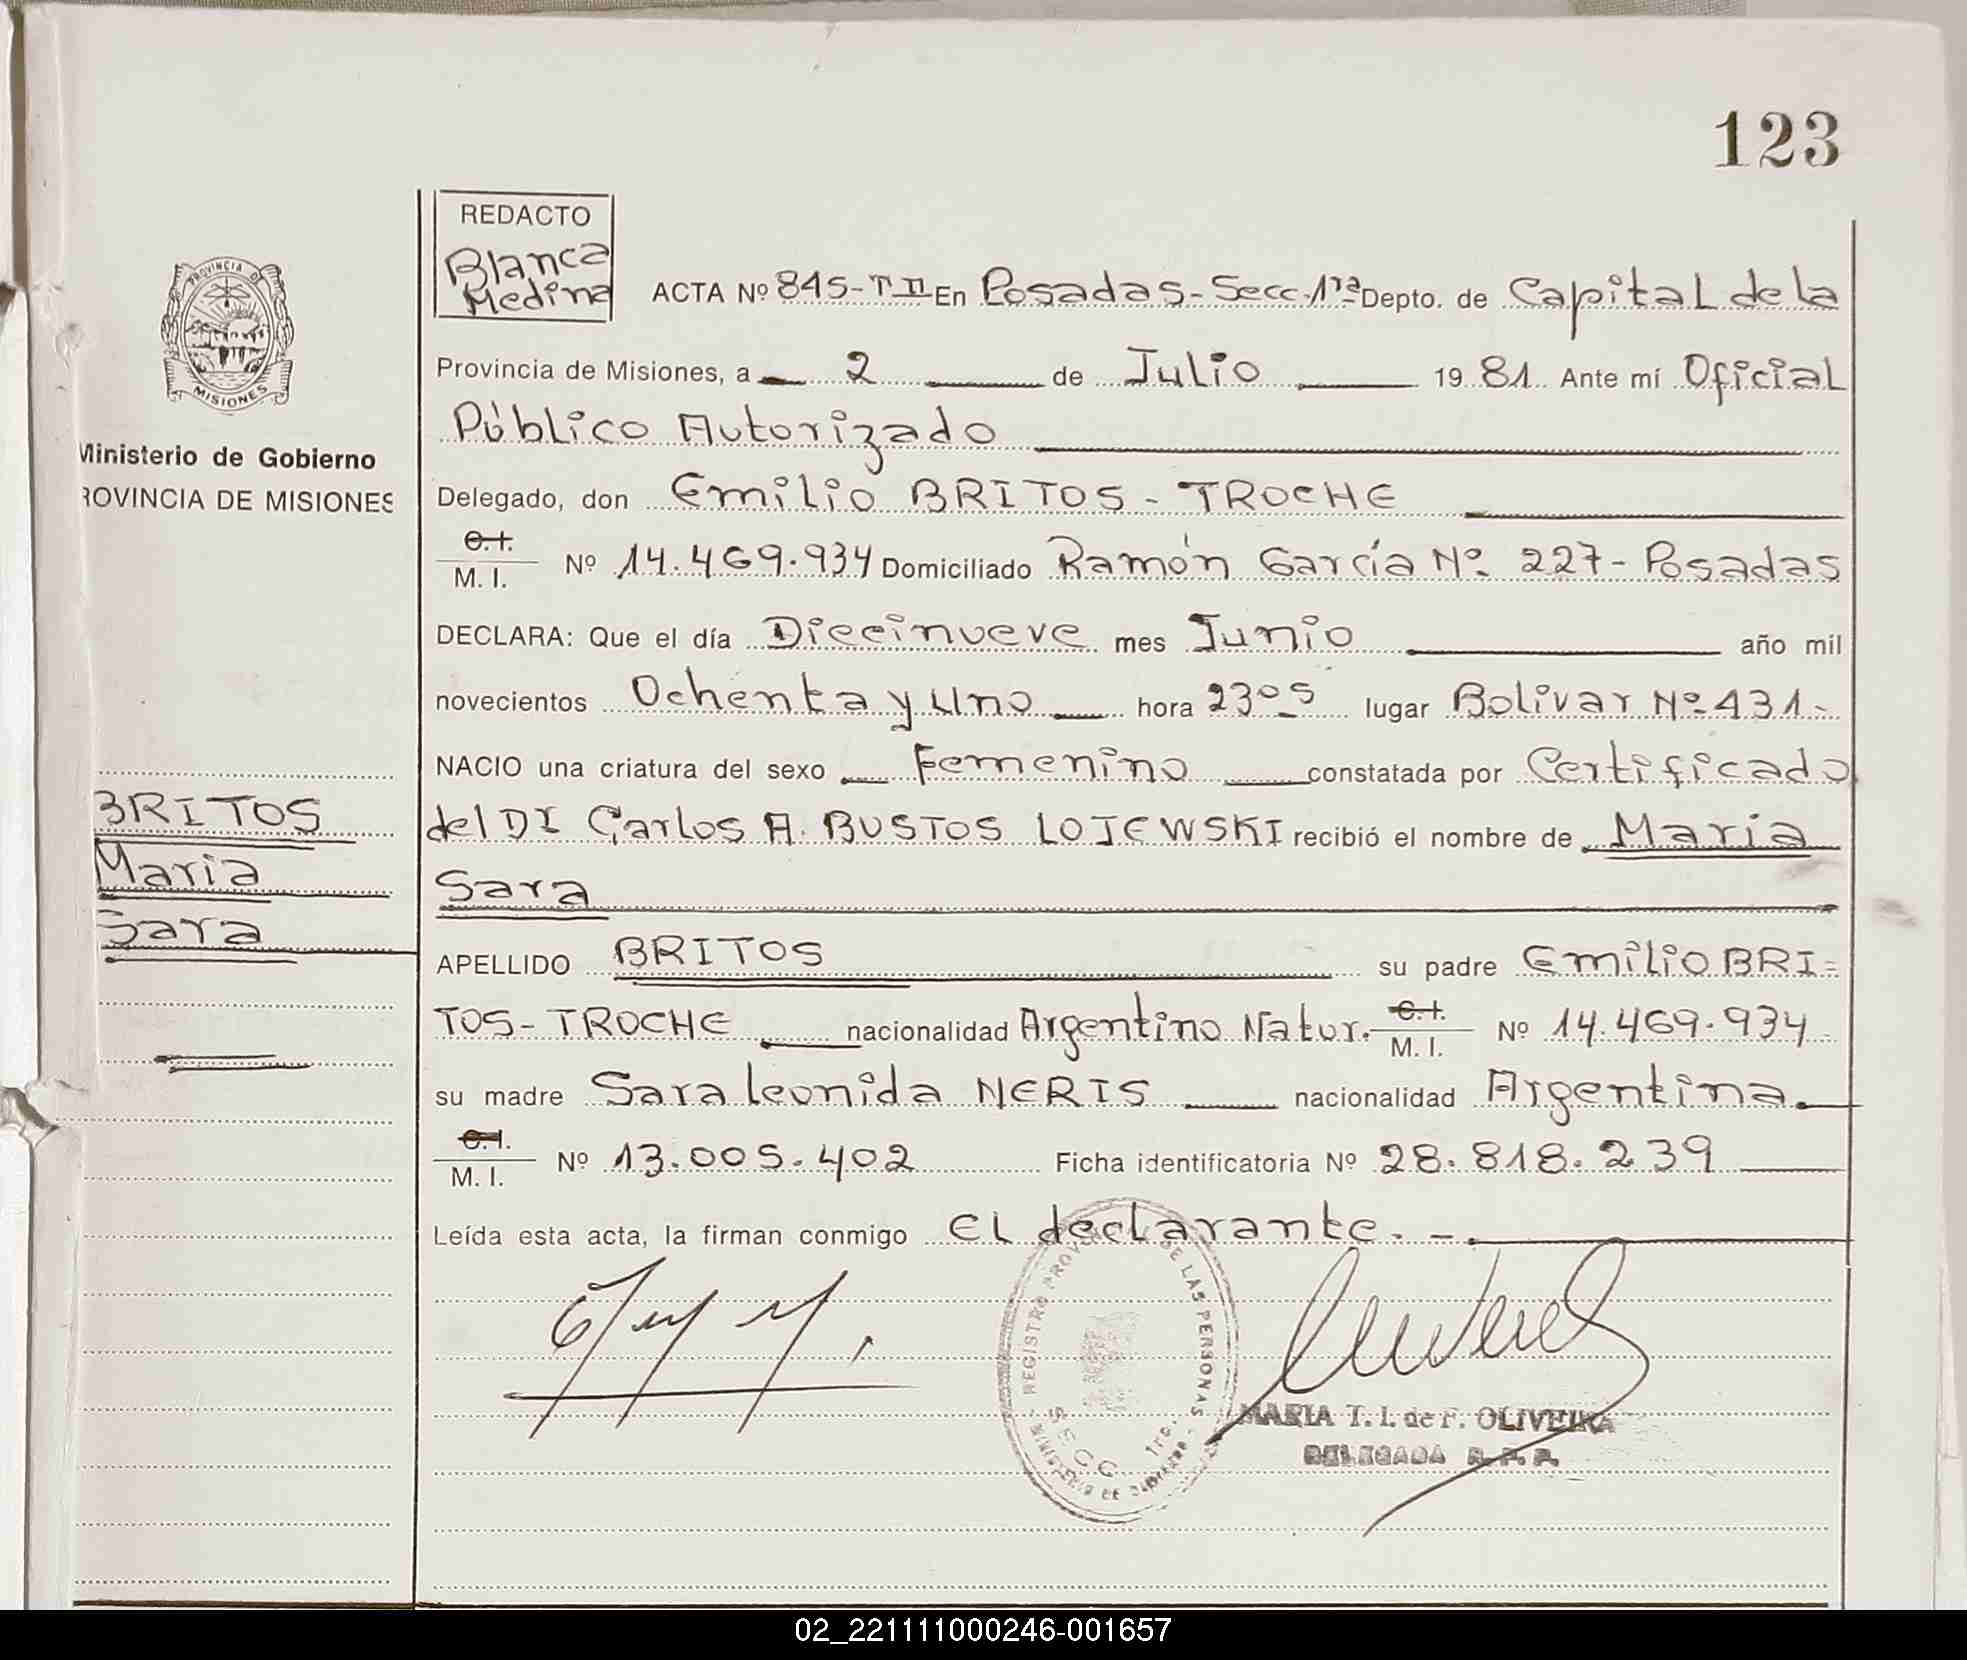 123
REDACTO
Blanca
Medina
PROVINCIA DE
MISIONES
Ministerio de Gobierno
ROVINCIA DE MISIONES
BRITOS
Maria
Sara
ACTA Nº 845-TII En Posadas-Secc.1ra Depto. de Capital de la
Provincia de Misiones, a 2 de Julio 1981. Ante mí Oficial
Público Autorizado
Delegado, don Emilio BRITOS - TROCHE
C.I. M.I. Nº 14.469.934 Domiciliado Ramón García Nº 227- Posadas
DECLARA: Que el día Diecinueve mes Junio año mil
novecientos Ochenta y Uno hora 23º5 lugar Bolivar Nº 431.-
NACIO una criatura del sexo Femenino constatada por Certificado
del DI Carlos A. BUSTOS LOJEWSKI recibió el nombre de Maria
Sara
APELLIDO BRITOS su padre Emilio BRI=
TOS- TROCHE nacionalidad Argentino Natur. C.I. M.I. Nº 14.469.934
su madre Sara Leonida NERIS nacionalidad Argentina.
C.I. M.I. Nº 13.005.402 Ficha identificatoria Nº 28.818.239
Leída esta acta, la firman conmigo el declarante. -
REGISTRO PROV DE LAS PERSONAS
SECC 1ra.
MINISTERIO DE GOBIERNO
MARIA T. I. de F. OLIVEIRA
DELEGADA R. P. P.
02_221111000246-001657